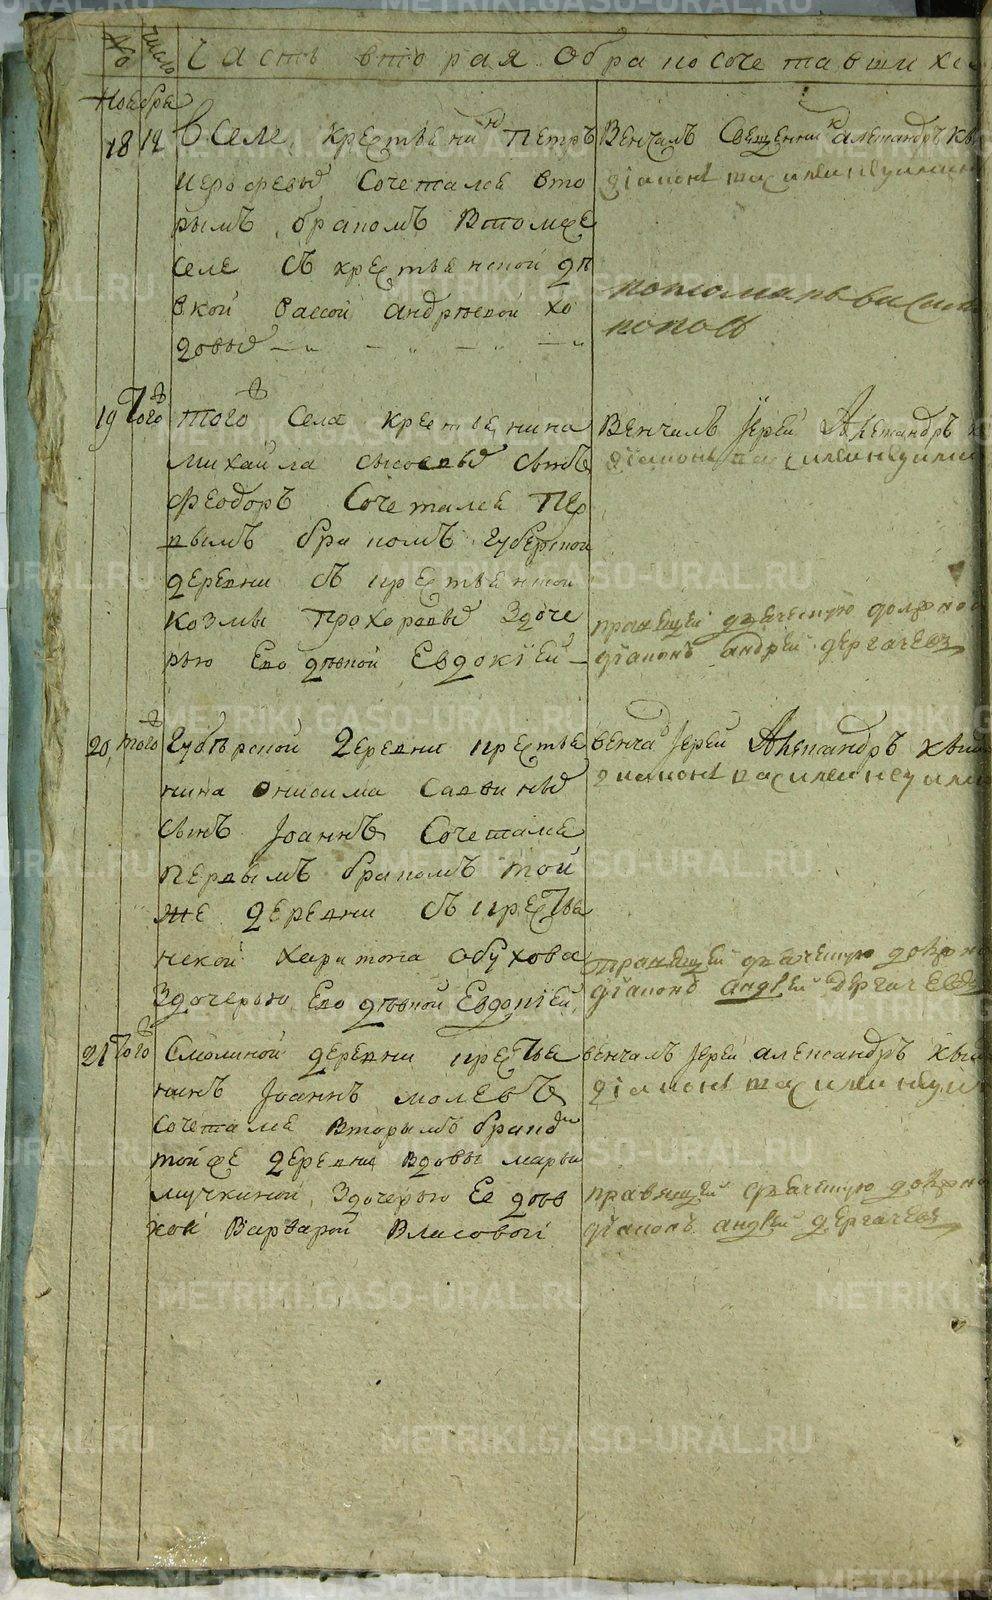 № число Часть вторая О бракосочетавшихся
Ноября
18 12 в Селе крестьянинъ Петръ
Иерофеевъ Сочетался вто
рымъ бракомъ в томже
селе съ крестьянской дѣ
вкой Вассой Андрѣевой Хо
довыхъ
Венчалъ Священникъ Александръ
дїаконъ
пономарь Васили
поповъ
19 Того тогожъ Села крестьянина
михаила сысоевыхъ сынъ
Феодоръ Сочетался Пер
вымъ бракомъ Губерской
деревни съ крестьянской
козмы Прохоровыхъ Здоче
рью Ево дѣвкой Евдокїей
Венчалъ Їерей Александръ
дїаконъ
правящей дьяческую должнос
дїаконъ андрей дергачевъ
20 того Губерской деревни крестья
нина Онисима Саввиныхъ
сынъ Їоаннъ Сочетался
Первымъ бракомъ той
же деревни съ крестья
нской харитона обухова
Здочерью Ево дѣвкой Евдокїей
венчалъ Їерей Александръ
дїаконъ
правящей дьяческую должно
дїаконъ андрей дергачевъ
21 Того Смолиной деревни крестья
нинъ Їоаннъ молевъ
сочетался вторымъ бракомъ
тойже деревни вдовы марьи
мучкиной Здочерью Ее дѣв
кой Варварой Власовой
венчалъ Їерей александръ
дїаконъ
правящей дьяческую должно
дїаконъ андрей дергачевъ
METRIKI.GASO-URAL.RU